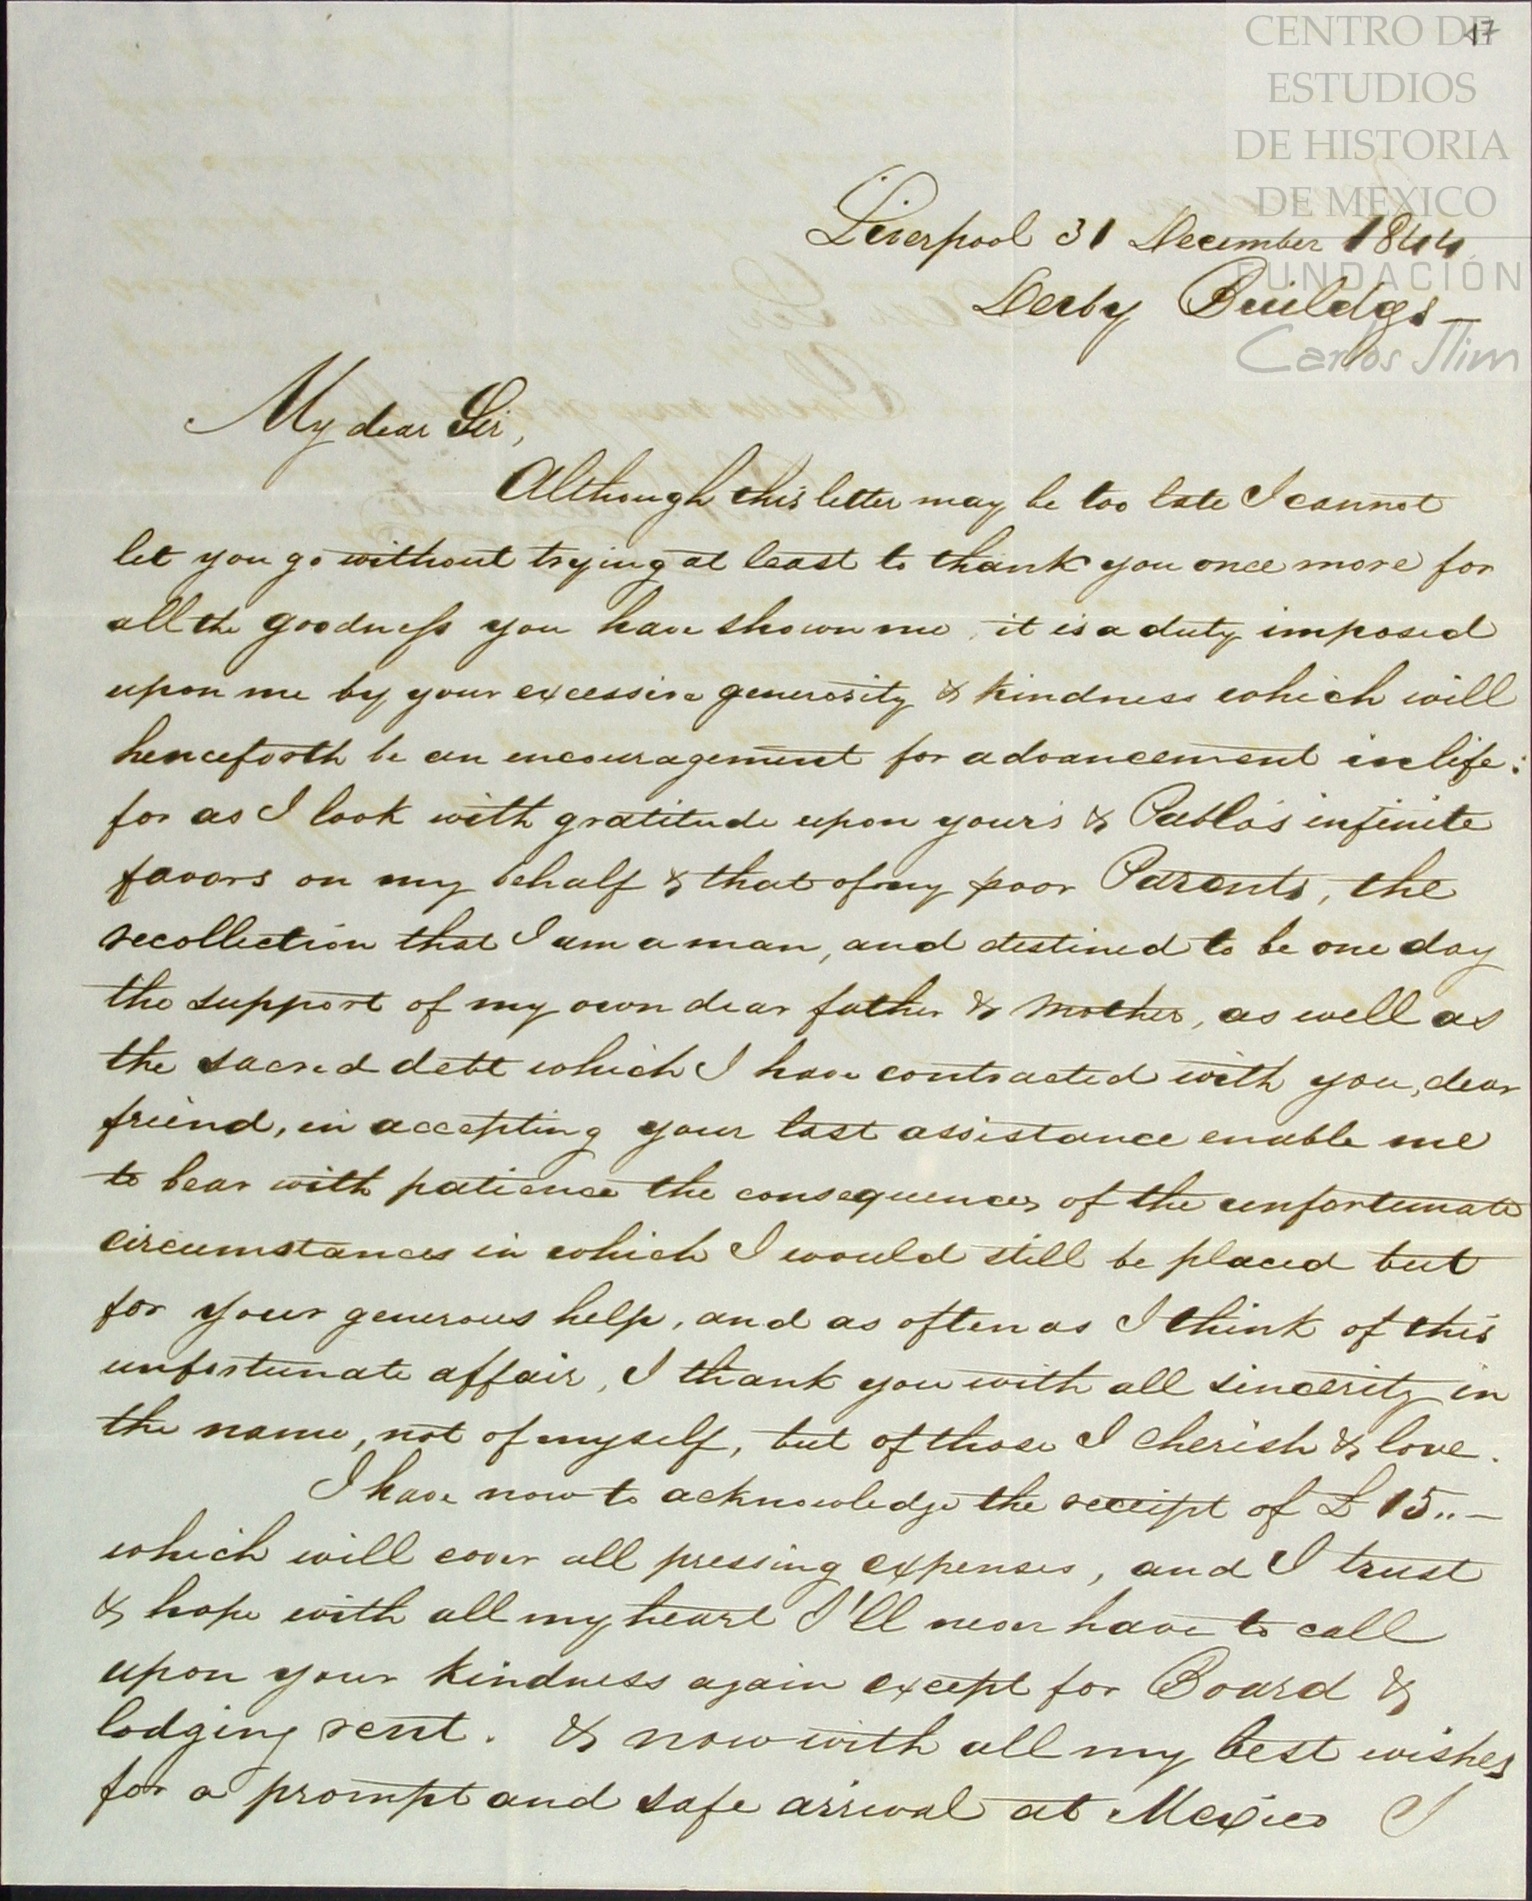 CENTRO DE
ESTUDIOS
DE HISTORIA
DE MEXICO
FUNDACIÓN
Carlos Slim
17
Liverpool 31 December 1844
Derby Buildgs —
My dear Sir,
Although this letter may be too late I cannot
let you go without trying at least to thank you once more for
all the goodness you have shown me, it is a duty imposed
upon me by your excessive generosity & kindness which will
henceforth be an encouragement for advancement in life:
for as I look with gratitude upon your's & Pablo's infinite
favors on my behalf & that of my poor Parents, the
recollection that I am a man, and destined to be one day
the support of my own dear father & mother, as well as
the sacred debt which I have contracted with you, dear
friend, in accepting your last assistance enable me
to bear with patience the consequences of the unfortunate
circumstances in which I would still be placed but
for your generous help, and as often as I think of this
unfortunate affair, I thank you with all sincerity in
the name, not of myself, but of those I cherish & love.
I have now to acknowledge the receipt of £ 15.. —
which will cover all pressing expenses, and I trust
& hope with all my heart I'll never have to call
upon your kindness again except for Board &
lodging rent. & now with all my best wishes
for a prompt and safe arrival at Mexico I